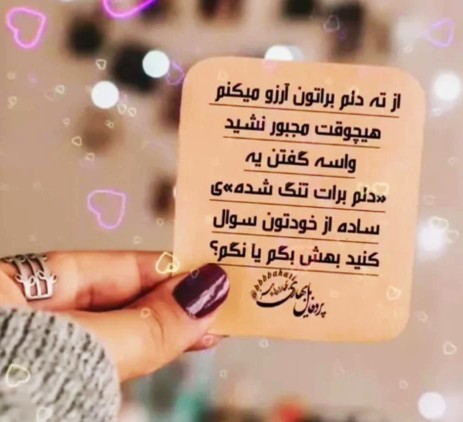 از ته دلم براتون آرزو میکنم
هیچوقت مجبور نشید
واسه گفتن یه
«دلم برات تنگ شده»ی
ساده از خودتون سوال
کنید بهش بگم یا نگم؟